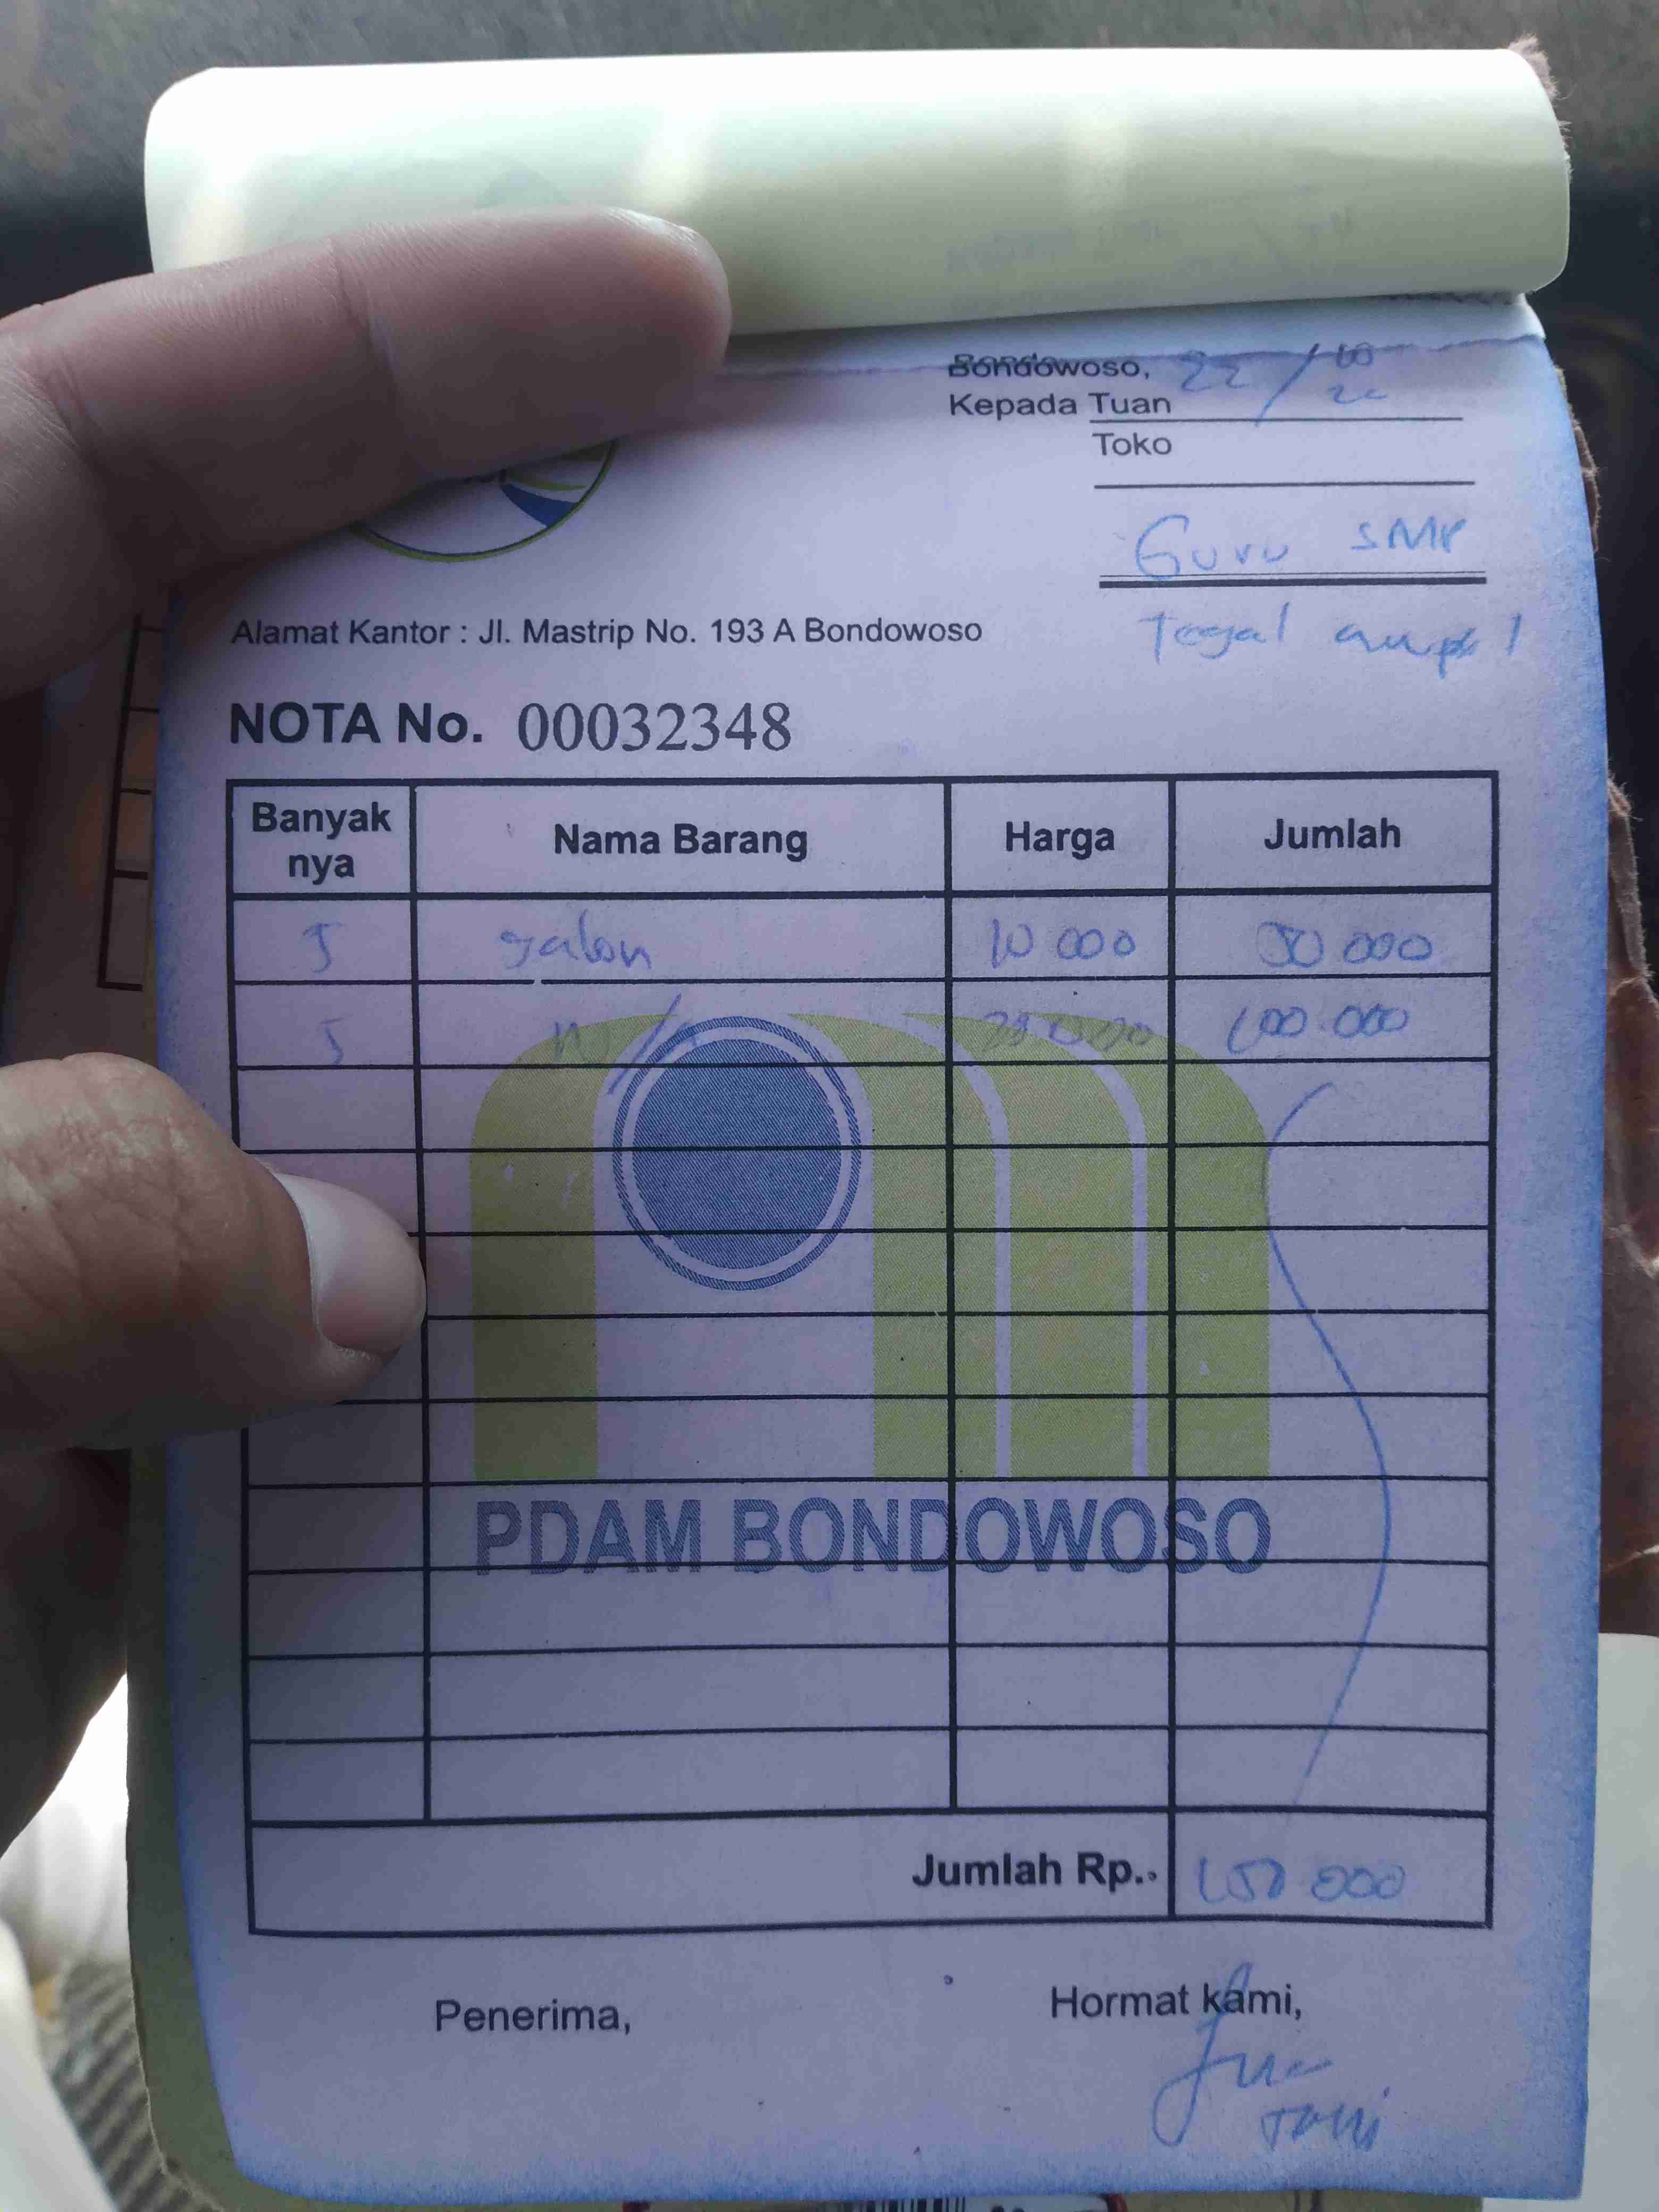 Bondowoso, 22/10
Kepada Tuan
Toko
Guru SMP
Tegal ampel
Alamat Kantor : Jl. Mastrip No. 193 A Bondowoso
NOTA No. 00032348
Banyak nya Nama Barang Harga Jumlah
5 galon 10 000 50 000
5 100.000
PDAM BONDOWOSO
Jumlah Rp.. 150 000
Penerima, Hormat kami,